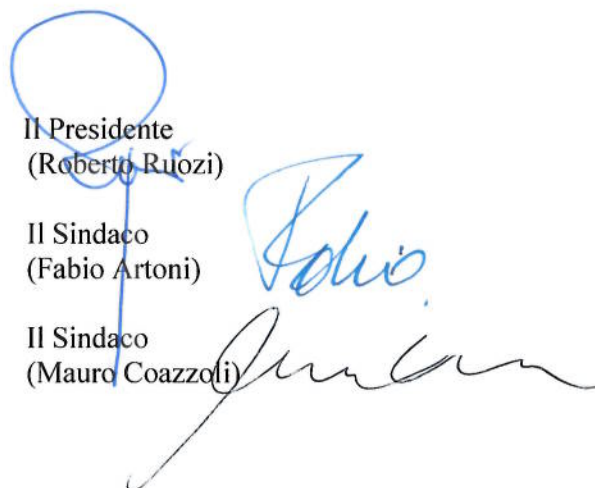 Il Presidente
(Roberto Ruozi)
Il Sindaco
(Fabio Artoni)
Il Sindaco
(Mauro Coazzoli)